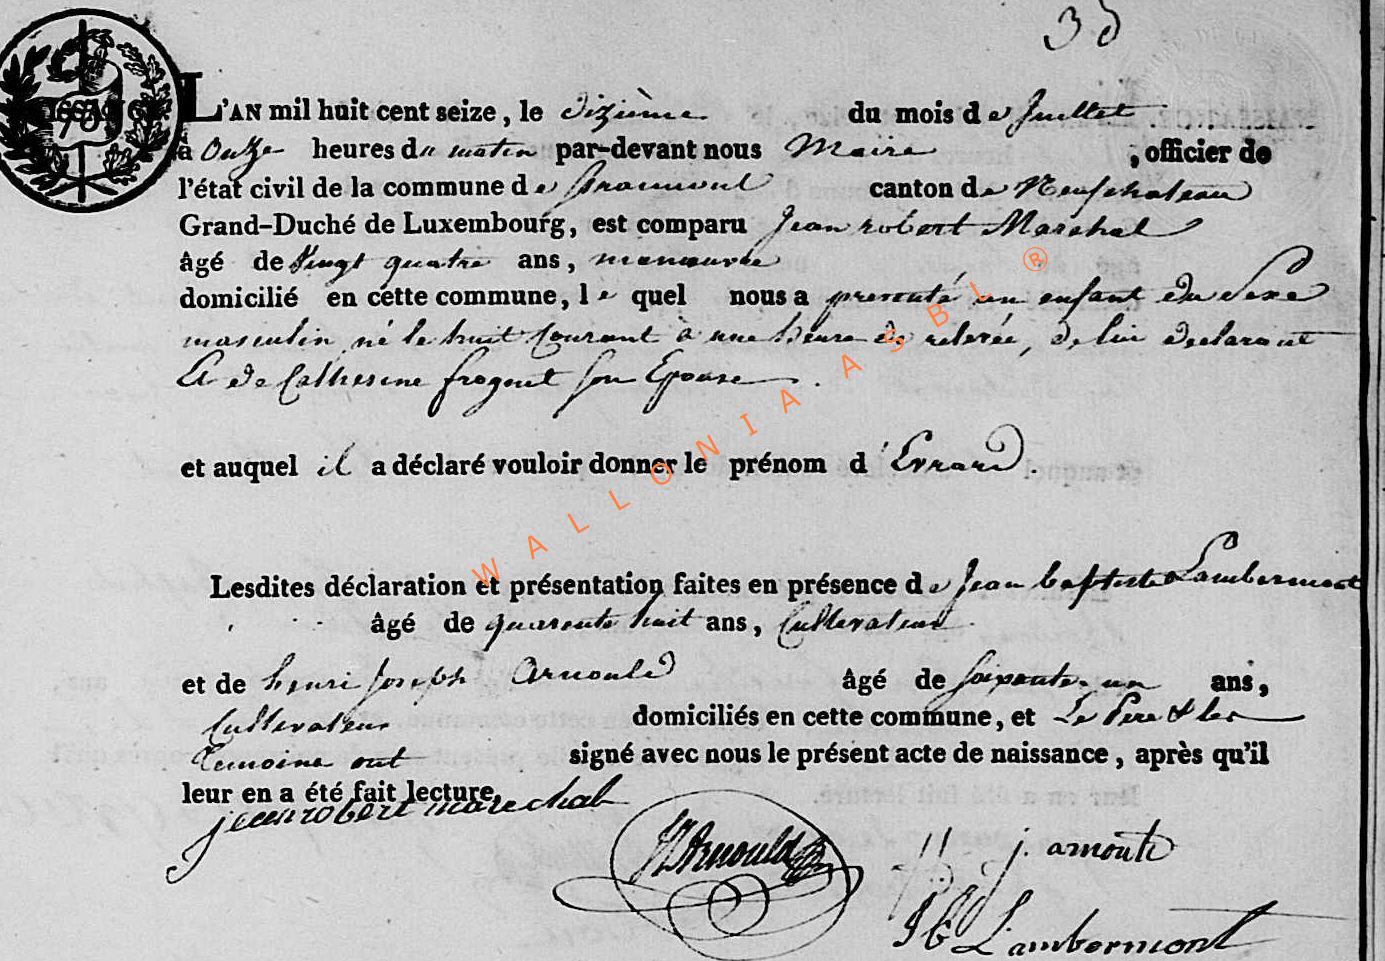 35
L'AN mil huit cent seize, le dizième du mois de Juillet
à Onze heures du matin par-devant nous Maire , officier de
l'état civil de la commune de Gramont canton de Neufchateau
Grand-Duché de Luxembourg, est comparu Jean robert Marechal
âgé de Vingt quatre ans, manœuvre
domicilié en cette commune, le quel nous a presenté un enfant du Sexe
masculin né le huit Courant à une heure de relevée, de lui declarant
Et de Catherine frognet son Epouse.
et auquel il a déclaré vouloir donner le prénom d'Evrard.
Lesdites déclaration et présentation faites en présence de Jean baptiste Lambermont
âgé de quarante huit ans, Cultivateur
et de henri Joseph Arnould âgé de soixante-un ans,
Cultivateur domiciliés en cette commune, et Le Pere & les
temoins ont signé avec nous le présent acte de naissance, après qu'il
leur en a été fait lecture.
jean robert marechal
Arnould
h. j. arnould
J B Lambermont
WALLONIA ASBL ®